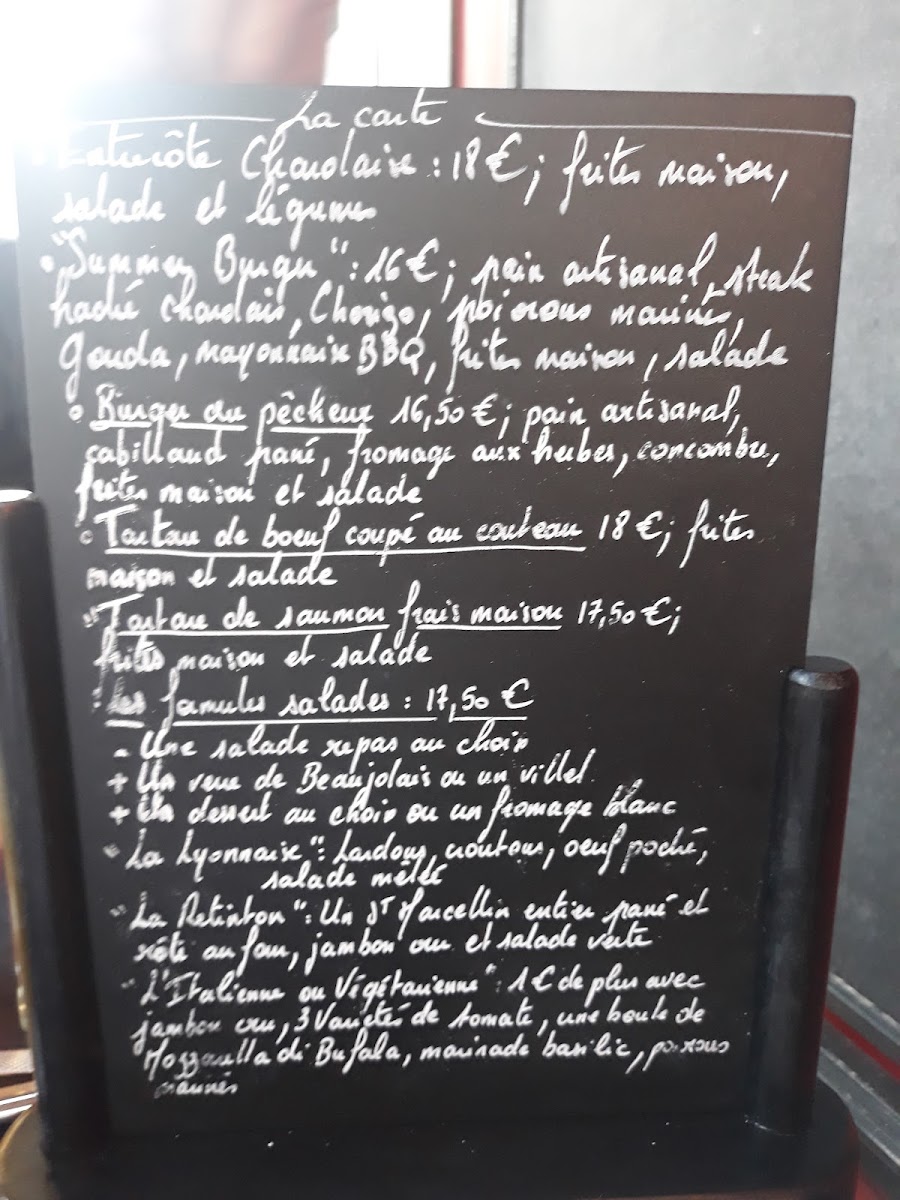 La carte
Entrecôte Charolaise : 18 €; frites maison,
salade et légumes
"Summer Burger" : 16 €; pain artisanal, steak
haché charolais, Chorizo, poivrons marinés,
Gouda, mayonnaise BBQ, frites maison, salade
Burger du pêcheur 16,50 €; pain artisanal,
cabillaud pané, fromage aux herbes, concombre,
frites maison et salade
Tartare de boeuf coupé au couteau 18 €; frites
maison et salade
Tartare de saumon frais maison 17,50 €;
frites maison et salade
Les formules salades : 17,50 €
- Une salade repas au choix
+ Un verre de Beaujolais ou un vittel
+ Un dessert au choix ou un fromage blanc
"La Lyonnaise" : Lardons, croutons, oeuf poché,
salade mêlée
"La Retinton" : Un St Marcellin entier pané et
rôti au four, jambon cru et salade verte
"L'Italienne ou Végétarienne" : 1 € de plus avec
jambon cru, 3 Variétés de tomate, une boule de
Mozzarella di Bufala, marinade basilic, poivrons
marinés